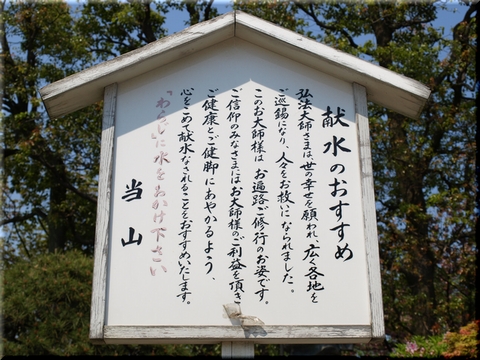 献水のおすすめ
弘法大師さまは、世の幸せを願われ、広く各地を
ご巡錫になり、人々をお救いになられました。
このお大師様は、お遍路ご修行のお姿です。
ご信仰のみなさまにはお大師様のご利益を頂き
ご健康とご健脚にあやかるよう、
心をこめて献水なされることをおすすめいたします。
「わらじ」に水をおかけ下さい
当山